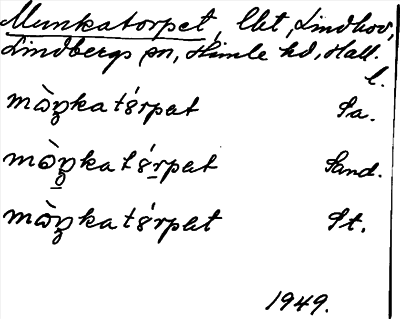 Munkatorpet, lht, Lindhov,
Lindbergs sn, Himle hd, Hall.
l.
mòŋkatɤ́rpat Sa.
mòŋkatɤ́rpat Sand.
mòŋkatɤ́rpat St.
1949.